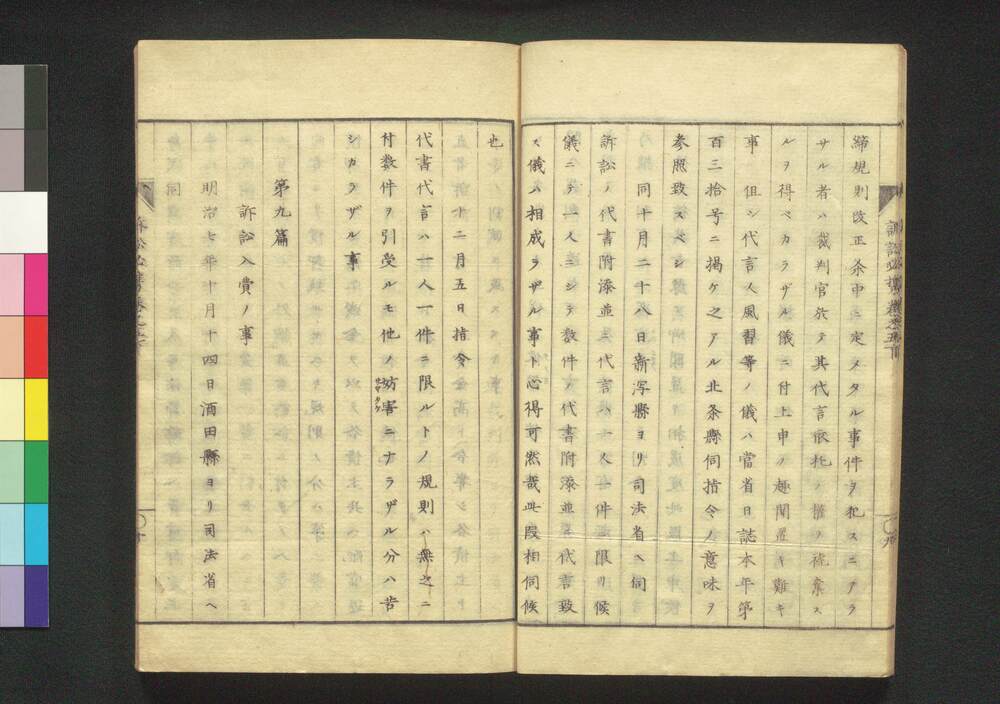 締規則改正条中ニ定メタル事件ヲ犯スニアラ
サル者ハ裁判官於テ其代言依托ノ権ヲ褫棄ス
ルヲ得ベカラザル儀ニ付上申ノ趣聞置キ難キ
事　但シ代言人風習等ノ儀ハ當省日誌本年第
百三拾号ニ掲ケ之アル北条縣伺指令ノ意味ヲ
参照致スベシ
同十月二十八日新潟縣ヨリ司法省ヘ伺
訴訟ノ代書附添並ニ代言ハ一人一件ニ限リ候
儀ニテ一人ニシテ数件ヲ代書附添並ニ代言致
ス儀ハ相成ラザル事ト心得可然哉此段相伺候
也
十二月五日指令
代書代言ハ一人一件ニ限ルトノ規則ハ無之ニ
付数件ヲ引受ルモ他ノ妨害ニナラザル分ハ苦
シカラザル事
第九篇
訴訟入費ノ事
明治七年十月十四日酒田縣ヨリ司法省ヘ